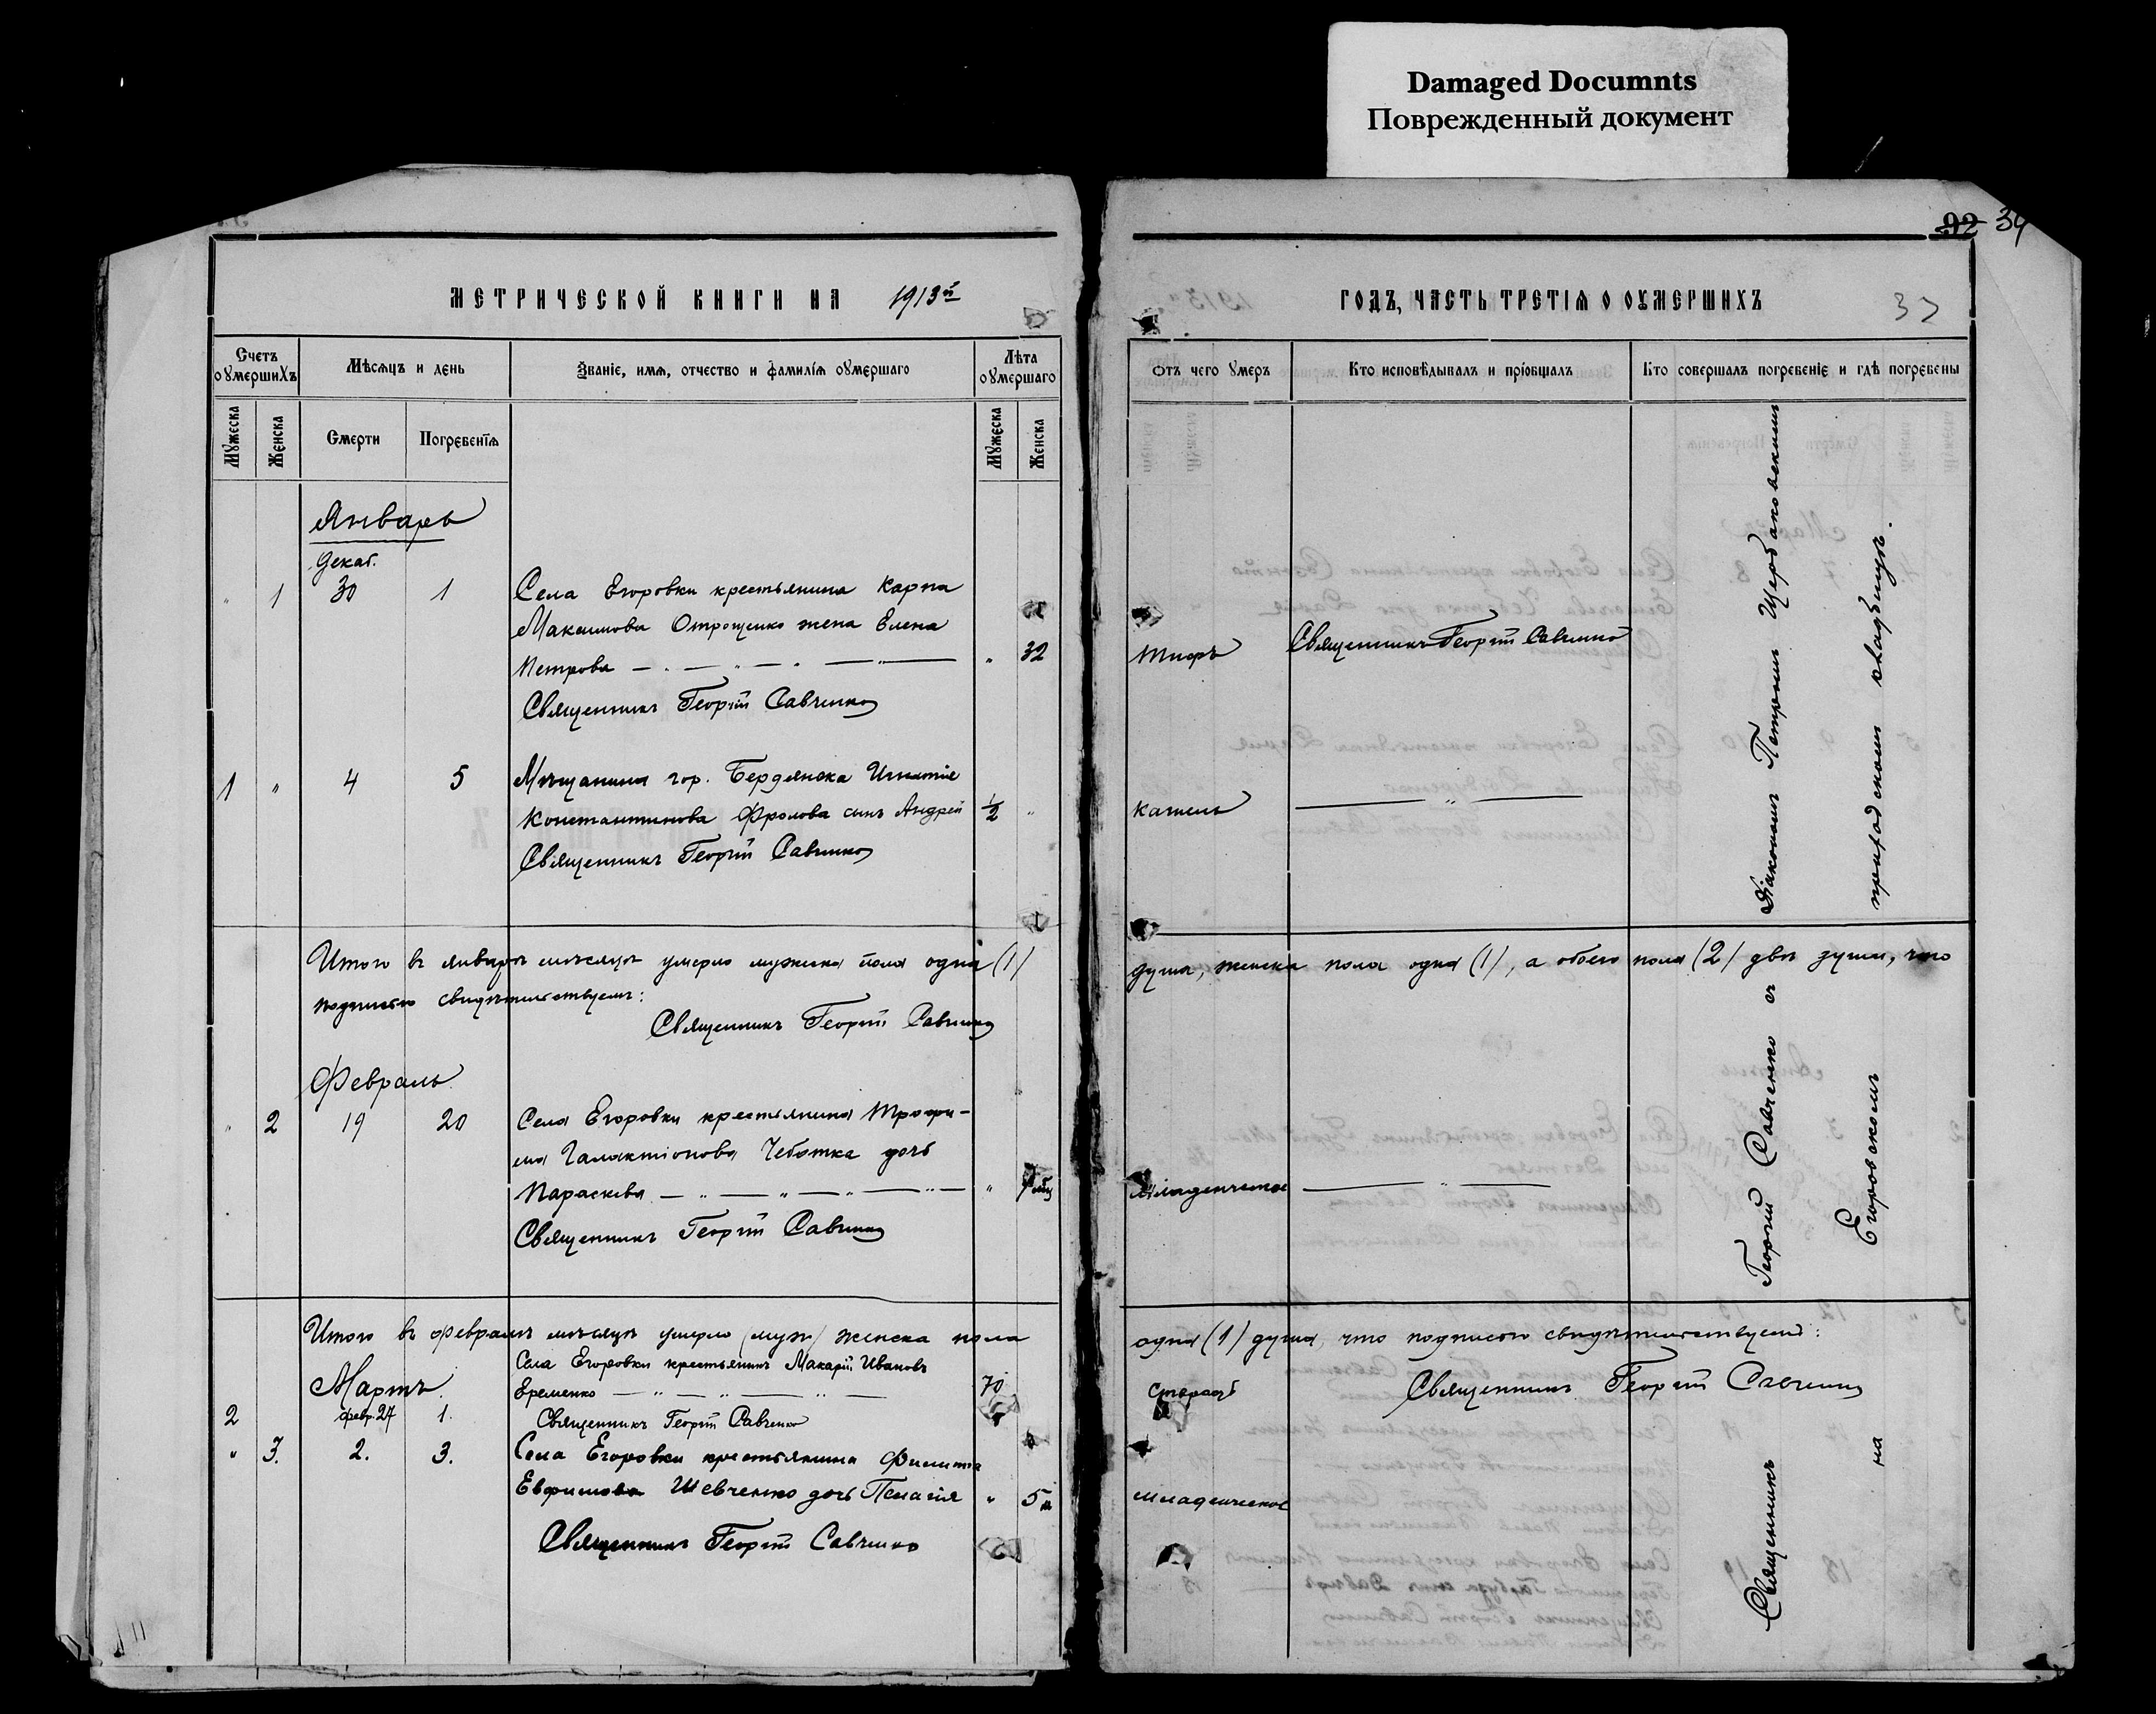 Damaged Documnts
Поврежденный документ
МЕТРИЧЕСКОЙ КНИГИ НА 1913й
Счетъ оумершихъ
Мѣсяцъ и день
Званіе, имя, отчество и фамилія оумершаго
Лѣта оумершаго
Мужеска
Женска
Смерти
Погребенія
Мужеска
Женска
Январь
Декаб.
" 1 30 1 Села Егоровки крестьянина Карпа
Максимова Отрощенко жена Елена
Петрова " 32
Священникъ Георгій Савченко
1 " 4 5 Мѣщанина гор. Бердянска Игнатія
Константинова Фролова сынъ Андрей 1/2 "
Священникъ Георгій Савченко
Итого въ январѣ мѣсяцѣ умерло мужска пола одна (1)
подписью свидѣтельствуемъ:
Священникъ Георгій Савченко
Февраль
" 2 19 20 Села Егоровки крестьянина Трофи-
ма Галактіонова Чеботка дочь
Параскева "
Священникъ Георгій Савченко
Итого въ февралѣ мѣсяцѣ умерло (муж) женска пола
Села Егоровки крестьянинъ Макарій Ивановъ
Мартъ. Еременко 70
2 февр. 27 1. Священникъ Георгій Савченко
" 3. 2. 3. Села Егоровки крестьянина Филиппа
Евфимова Шевченко дочь Пелагія " 5 м
Священникъ Георгій Савченко
92 34
ГОДЪ, ЧАСТЬ ТРЕТІЯ О ОУМЕРШИХЪ 37
Отъ чего умеръ
Кто исповѣдывалъ и пріобщалъ
Кто совершалъ погребеніе и гдѣ погребены
Тифъ Священникъ Георгій Савченко
кашель "
душа, женска пола одна (1), а обоего пола (2) двѣ души, что
Младенческое "
одна (1) душа, что подписью свидѣтельствуемъ:
Старость Священникъ Георгій Савченко
младенческое
Священникъ Георгій Савченко съ Діакономъ Петромъ Щербаковскимъ
на Егоровскомъ приходскомъ кладбищѣ.